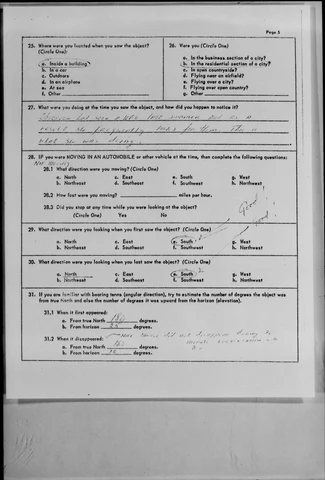 Page 5
25. Where were you located when you saw the object?
(Circle One):
a. Inside a building
b. In a car
c. Outdoors
d. In an airplane
e. At sea
f. Other
26. Were you (Circle One)
a. In the business section of a city?
b. In the residential section of a city?
c. In open countryside?
d. Flying near an airfield?
e. Flying over a city?
f. Flying over open country?
g. Other
27. What were you doing at the time you saw the object, and how did you happen to notice it?
28. IF you were MOVING IN AN AUTOMOBILE or other vehicle at the time, then complete the following questions:
Not Moving
28.1 What direction were you moving? (Circle One)
a. North c. East e. South g. West
b. Northeast d. Southeast f. Southwest h. Northwest
28.2 How fast were you moving? miles per hour.
28.3 Did you stop at any time while you were looking at the object?
(Circle One) Yes No
Good!
29. What direction were you looking when you first saw the object? (Circle One)
a. North c. East e. South g. West
b. Northeast d. Southeast f. Southwest h. Northwest
30. What direction were you looking when you last saw the object? (Circle One)
a. North c. East e. South g. West
b. Northeast d. Southeast f. Southwest h. Northwest
31. If you are familiar with bearing terms (angular direction), try to estimate the number of degrees the object was
from true North and also the number of degrees it was upward from the horizon (elevation).
31.1 When it first appeared:
a. From true North 180 degrees.
b. From horizon 25 degrees.
31.2 When it disappeared:
a. From true North 180 degrees.
b. From horizon degrees.